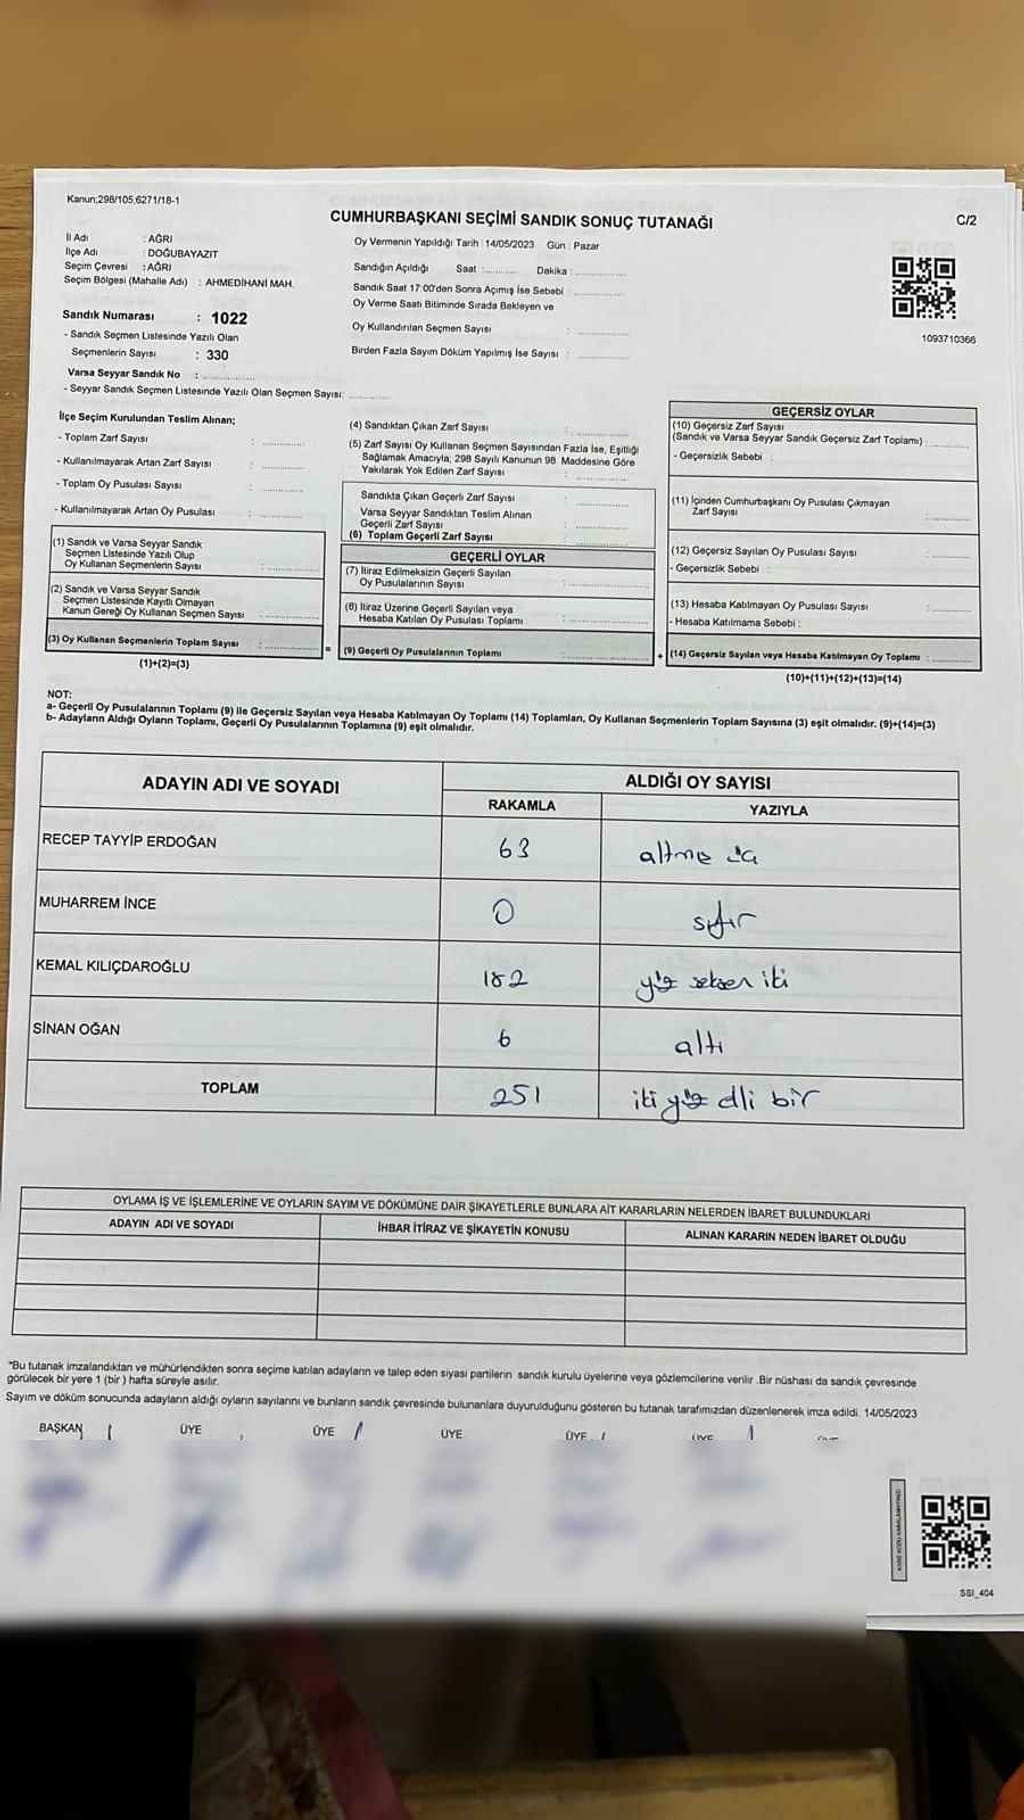 Kanun;298/105,6271/18-1
CUMHURBAŞKANI SEÇİMİ SANDIK SONUÇ TUTANAĞI
C/2
İl Adı : AĞRI
İlçe Adı : DOĞUBAYAZIT
Seçim Çevresi : AĞRI
Seçim Bölgesi (Mahalle Adı) : AHMEDİHANİ MAH.
Sandık Numarası : 1022
- Sandık Seçmen Listesinde Yazılı Olan
Seçmenlerin Sayısı : 330
Varsa Seyyar Sandık No : ..............
- Seyyar Sandık Seçmen Listesinde Yazılı Olan Seçmen Sayısı: ..............
Oy Vermenin Yapıldığı Tarih : 14/05/2023 Gün : Pazar
Sandığın Açıldığı Saat :.......... Dakika : ..............
Sandık Saat 17:00'den Sonra Açımış İse Sebebi : ..............
Oy Verme Saati Bitiminde Sırada Bekleyen ve
Oy Kullandırılan Seçmen Sayısı : ..............
Birden Fazla Sayım Döküm Yapılmış İse Sayısı : ..............
1093710366
İlçe Seçim Kurulundan Teslim Alınan;
- Toplam Zarf Sayısı : ..............
- Kullanılmayarak Artan Zarf Sayısı : ..............
- Toplam Oy Pusulası Sayısı : ..............
- Kullanılmayarak Artan Oy Pusulası : ..............
(1) Sandık ve Varsa Seyyar Sandık
Seçmen Listesinde Yazılı Olup
Oy Kullanan Seçmenlerin Sayısı : ..............
(2) Sandık ve Varsa Seyyar Sandık
Seçmen Listesinde Kayıtlı Olmayan
Kanun Gereği Oy Kullanan Seçmen Sayısı : ..............
(3) Oy Kullanan Seçmenlerin Toplam Sayısı : ..............
(1)+(2)=(3)
(4) Sandıktan Çıkan Zarf Sayısı : ..............
(5) Zarf Sayısı Oy Kullanan Seçmen Sayısından Fazla İse, Eşitliği
Sağlamak Amacıyla, 298 Sayılı Kanunun 98. Maddesine Göre
Yakılarak Yok Edilen Zarf Sayısı : ..............
Sandıkta Çıkan Geçerli Zarf Sayısı : ..............
Varsa Seyyar Sandıktan Teslim Alınan
Geçerli Zarf Sayısı : ..............
(6) Toplam Geçerli Zarf Sayısı : ..............
GEÇERLİ OYLAR
(7) İtiraz Edilmeksizin Geçerli Sayılan
Oy Pusulalarının Sayısı : ..............
(8) İtiraz Üzerine Geçerli Sayılan veya
Hesaba Katılan Oy Pusulası Toplamı : ..............
=
(9) Geçerli Oy Pusulalarının Toplamı : ..............
+
GEÇERSİZ OYLAR
(10) Geçersiz Zarf Sayısı
(Sandık ve Varsa Seyyar Sandık Geçersiz Zarf Toplamı) : ..............
- Geçersizlik Sebebi :
(11) İçinden Cumhurbaşkanı Oy Pusulası Çıkmayan
Zarf Sayısı : ..............
(12) Geçersiz Sayılan Oy Pusulası Sayısı : ..............
- Geçersizlik Sebebi :
(13) Hesaba Katılmayan Oy Pusulası Sayısı : ..............
- Hesaba Katılmama Sebebi :
(14) Geçersiz Sayılan veya Hesaba Katılmayan Oy Toplamı : ..............
(10)+(11)+(12)+(13)=(14)
NOT:
a- Geçerli Oy Pusulalarının Toplamı (9) ile Geçersiz Sayılan veya Hesaba Katılmayan Oy Toplamı (14) Toplamları, Oy Kullanan Seçmenlerin Toplam Sayısına (3) eşit olmalıdır. (9)+(14)=(3)
b- Adayların Aldığı Oyların Toplamı, Geçerli Oy Pusulalarının Toplamına (9) eşit olmalıdır.
ADAYIN ADI VE SOYADI ALDIĞI OY SAYISI
RAKAMLA YAZIYLA
RECEP TAYYİP ERDOĞAN 63 altmış üç
MUHARREM İNCE 0 sıfır
KEMAL KILIÇDAROĞLU 182 yüz seksen iki
SİNAN OĞAN 6 altı
TOPLAM 251 iki yüz elli bir
OYLAMA İŞ VE İŞLEMLERİNE VE OYLARIN SAYIM VE DÖKÜMÜNE DAİR ŞİKAYETLERLE BUNLARA AİT KARARLARIN NELERDEN İBARET BULUNDUKLARI
ADAYIN ADI VE SOYADI İHBAR İTİRAZ VE ŞİKAYETİN KONUSU ALINAN KARARIN NEDEN İBARET OLDUĞU
*Bu tutanak imzalandıktan ve mühürlendikten sonra seçime katılan adayların ve talep eden siyasi partilerin sandık kurulu üyelerine veya gözlemcilerine verilir .Bir nüshası da sandık çevresinde
görülecek bir yere 1 (bir ) hafta süreyle asılır.
Sayım ve döküm sonucunda adayların aldığı oyların sayılarını ve bunların sandık çevresinde bulunanlara duyurulduğunu gösteren bu tutanak tarafımızdan düzenlenerek imza edildi. 14/05/2023
BAŞKAN ÜYE ÜYE ÜYE ÜYE ÜYE
SSI_404